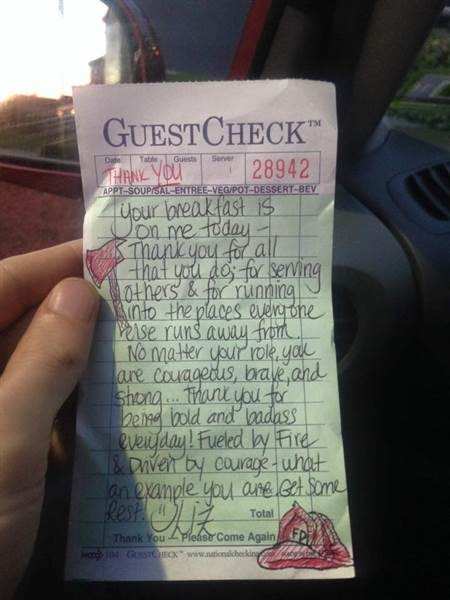 GUESTCHECK™
Date Table Guests Server
THANK YOU 28942
APPT-SOUP/SAL-ENTREE-VEG/POT-DESSERT-BEV
your breakfast is
on me today -
Thank you for all
that you do; for serving
others & for running
into the places everyone
else runs away from.
No matter your role, you
are courageous, brave, and
strong... Thank you for
being bold and badass
everyday! Fueled by Fire
& Driven by courage - what
an example you are. Get Some
Rest. Liz
Total
Thank You Please Come Again
FD
GUESTCHECK™